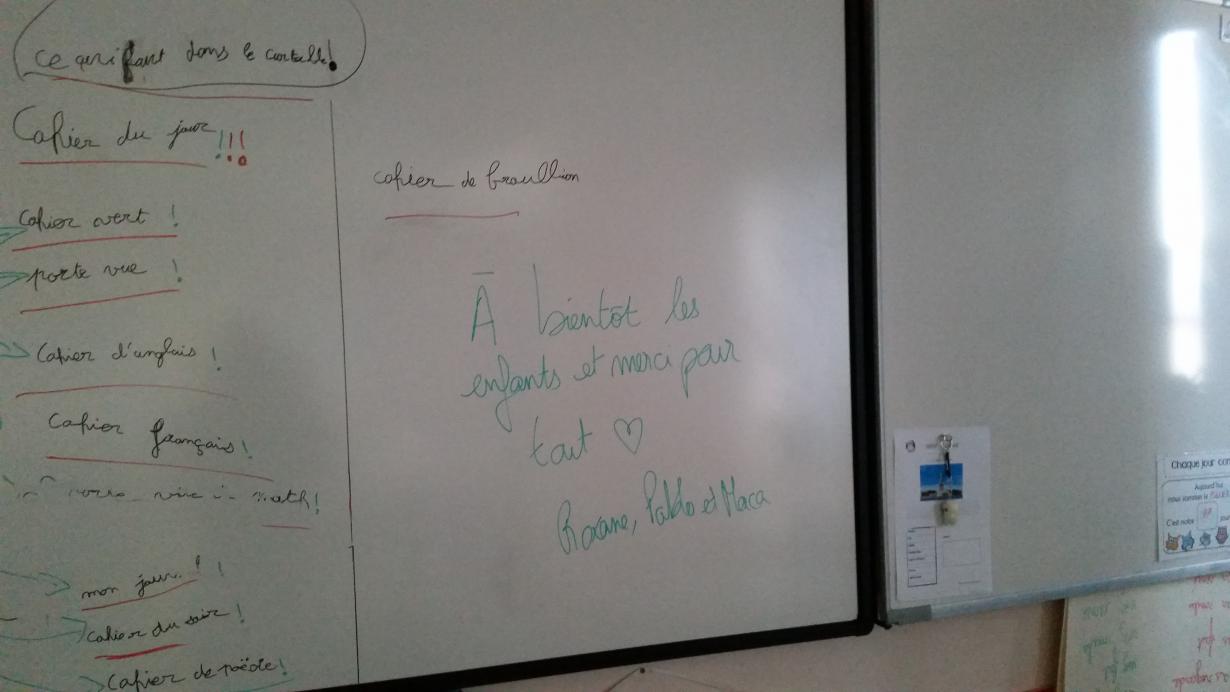 ce qui faut dans le cartable!
Cahier du jour!!!
Cahier vert !
porte vue !
Cahier d'anglais !
Cahier français!
vue math!
mon jour !!
cahier du soir !
Cahier de poësie!
cahier de broullion
À bientôt les
enfants et merci pour
tout ♡
Roxane, Pablo et Maca
Chaque jour
Aujourd'hui
nous sommes le
C'est notre